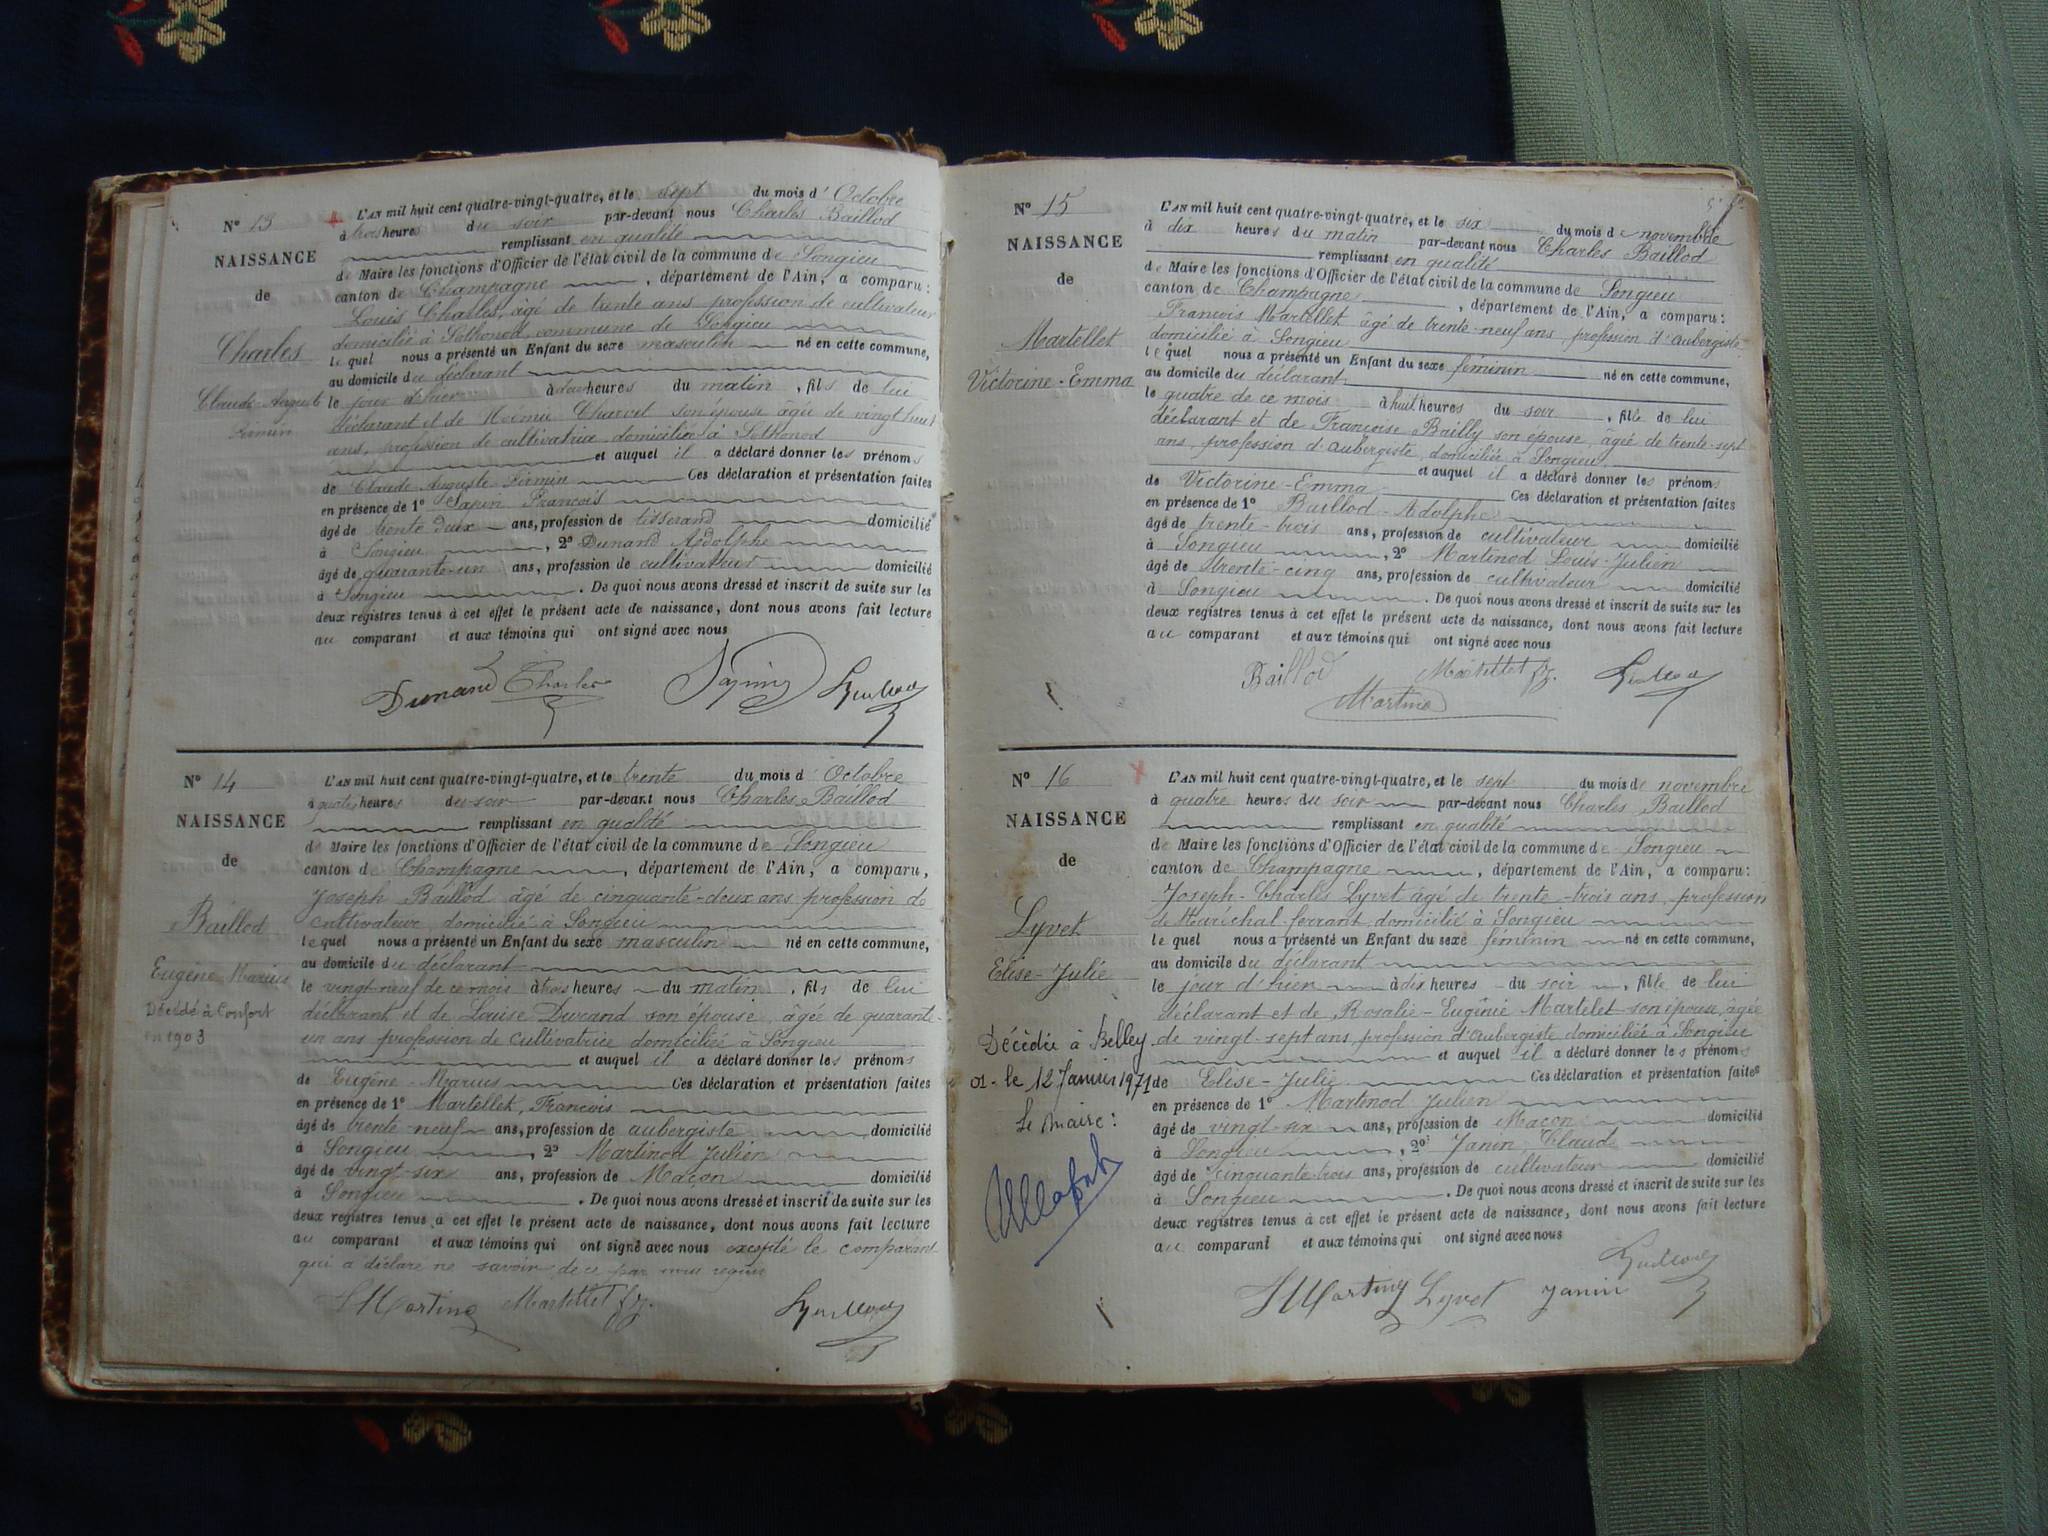 N° 13
NAISSANCE
de
Charles
Claude-Auguste
Firmin
L'AN mil huit cent quatre-vingt-quatre, et le sept du mois d' Octobre
à trois heures du soir par-devant nous Charles Baillod
remplissant en qualité
de Maire les fonctions d'Officier de l'état civil de la commune de Songieu
canton de Champagne, département de l'Ain, a comparu:
Louis Charles, âgé de trente ans profession de cultivateur
domicilié à Sothonod commune de Songieu
le quel nous a présenté un Enfant du sexe masculin né en cette commune,
au domicile du déclarant
le jour d'hier à heures du matin, fils de lui
déclarant et de Noémie Charvet son épouse âgée de vingt huit
ans, profession de cultivatrice domiciliée à Sothonod
et auquel il a déclaré donner les prénoms
de Claude Auguste Firmin Ces déclaration et présentation faites
en présence de 1° Sapin François
âgé de trente deux ans, profession de tisserand domicilié
à Songieu, 2° Dunand Adolphe
âgé de quarante-un ans, profession de cultivateur domicilié
à Songieu. De quoi nous avons dressé et inscrit de suite sur les
deux registres tenus à cet effet le présent acte de naissance, dont nous avons fait lecture
au comparant et aux témoins qui ont signé avec nous
Dunand Charles
N° 14
NAISSANCE
de
Baillod
Eugène Marius
Décédé à Confort
en 1903
L'AN mil huit cent quatre-vingt-quatre, et le trente du mois d' Octobre
à quatre heures du soir par-devant nous Charles Baillod
remplissant en qualité
de Maire les fonctions d'Officier de l'état civil de la commune de Songieu
canton de Champagne, département de l'Ain, a comparu,
Joseph Baillod âgé de cinquante-deux ans profession de
cultivateur domicilié à Songieu
le quel nous a présenté un Enfant du sexe masculin né en cette commune,
au domicile du déclarant
le vingt-neuf de ce mois à trois heures du matin, fils de lui
déclarant et de Louise Durand son épouse âgée de quarante-
un ans profession de cultivatrice domiciliée à Songieu
et auquel il a déclaré donner les prénoms
de Eugène-Marius Ces déclaration et présentation faites
en présence de 1° Martellet, François
âgé de trente-neuf ans, profession de aubergiste domicilié
à Songieu, 2° Martinod Julien
âgé de vingt-six ans, profession de Maçon domicilié
à Songieu. De quoi nous avons dressé et inscrit de suite sur les
deux registres tenus à cet effet le présent acte de naissance, dont nous avons fait lecture
au comparant et aux témoins qui ont signé avec nous excepté le comparant
qui a déclaré ne savoir de ce par nous requis
Martellet
N° 15
NAISSANCE
de
Martellet
Victorine-Emma
L'AN mil huit cent quatre-vingt-quatre, et le six du mois de novembre
à dix heures du matin par-devant nous Charles Baillod
remplissant en qualité
de Maire les fonctions d'Officier de l'état civil de la commune de Songieu
canton de Champagne, département de l'Ain, a comparu:
François Martellet âgé de trente-neuf ans, profession d'aubergiste
domicilié à Songieu
le quel nous a présenté un Enfant du sexe féminin né en cette commune,
au domicile du déclarant
le quatre de ce mois à huit heures du soir, fille de lui
déclarant et de Françoise Bailly son épouse, âgée de trente-sept
ans, profession d'aubergiste, domiciliée à Songieu
et auquel il a déclaré donner les prénoms
de Victorine-Emma Ces déclaration et présentation faites
en présence de 1° Baillod-Adolphe
âgé de trente-trois ans, profession de cultivateur domicilié
à Songieu, 2° Martinod Louis-Julien
âgé de trente-cinq ans, profession de cultivateur domicilié
à Songieu. De quoi nous avons dressé et inscrit de suite sur les
deux registres tenus à cet effet le présent acte de naissance, dont nous avons fait lecture
au comparant et aux témoins qui ont signé avec nous
Baillod Martellet
N° 16
NAISSANCE
de
Lyvet
Elise-Julie
Décédée à Belley
01 - le 12 Janvier 1971
Le Maire:
L'AN mil huit cent quatre-vingt-quatre, et le sept du mois de novembre
à quatre heures du soir par-devant nous Charles Baillod
remplissant en qualité
de Maire les fonctions d'Officier de l'état civil de la commune de Songieu
canton de Champagne, département de l'Ain, a comparu:
Joseph-Charles Lyvet âgé de trente-trois ans, profession
de Maréchal-ferrant domicilié à Songieu
le quel nous a présenté un Enfant du sexe féminin né en cette commune,
au domicile du déclarant
le jour d'hier à dix heures du soir, fille de lui
déclarant et de Rosalie-Eugénie Martelet son épouse, âgée
de vingt-sept ans, profession d'aubergiste domiciliée à Songieu
et auquel il a déclaré donner les prénoms
de Elise-Julie Ces déclaration et présentation faites
en présence de 1° Martinod Julien
âgé de vingt-six ans, profession de Maçon domicilié
à Songieu, 2° Janin Claude
âgé de cinquante-trois ans, profession de cultivateur domicilié
à Songieu. De quoi nous avons dressé et inscrit de suite sur les
deux registres tenus à cet effet le présent acte de naissance, dont nous avons fait lecture
au comparant et aux témoins qui ont signé avec nous
Lyvet Janin